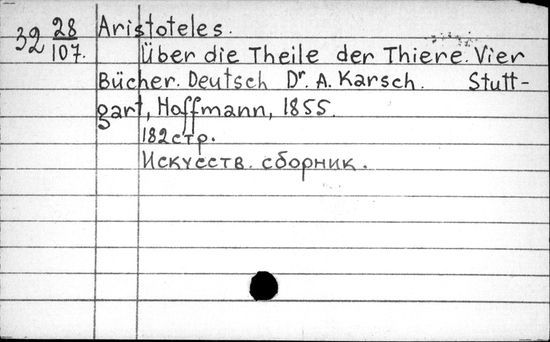 32 28/107. Aristoteles.
Über die Theile der Thiere. Vier
Bücher. Deutsch Dr. A. Karsch. Stutt-
gart, Hoffmann, 1855.
182 стр.
Искусств. сборник.